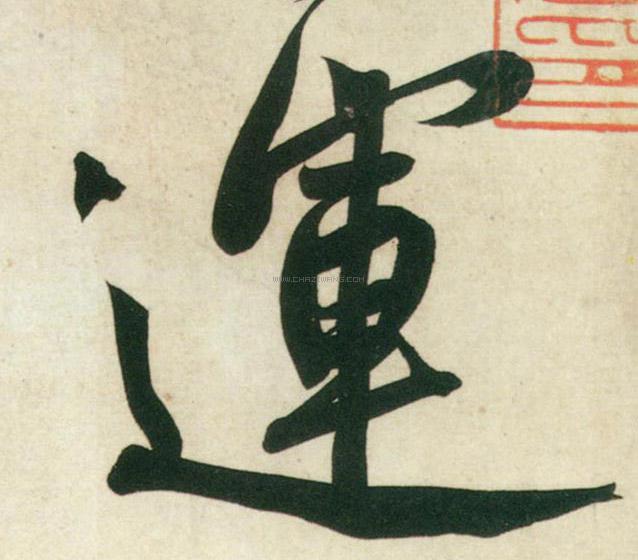 運
WWW.CHAZIWANG.COM